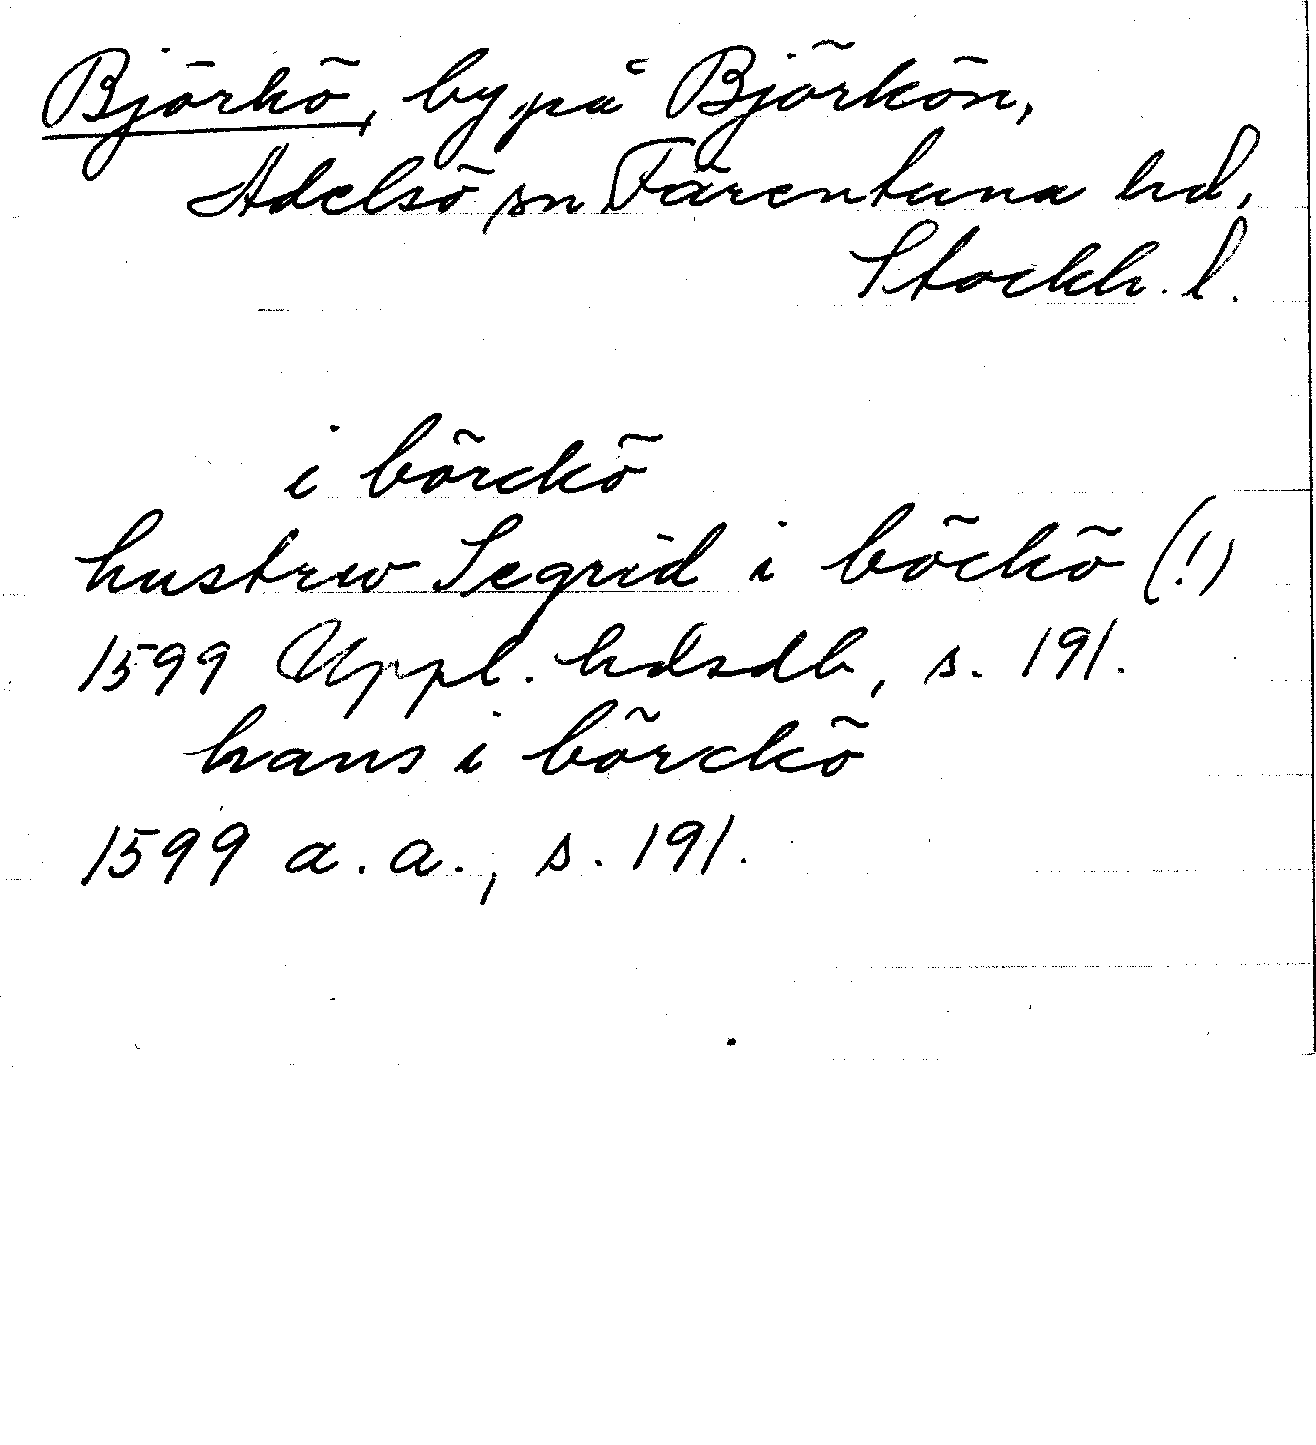 Björkö, by på Björkön,
Adelsö sn Färentuna hd,
Stockh. l.
i börckö
hustrw Segrid i böckö (!)
1599 Uppl. hdsdb, s. 191.
hans i börckö
1599 a. a., s. 191.